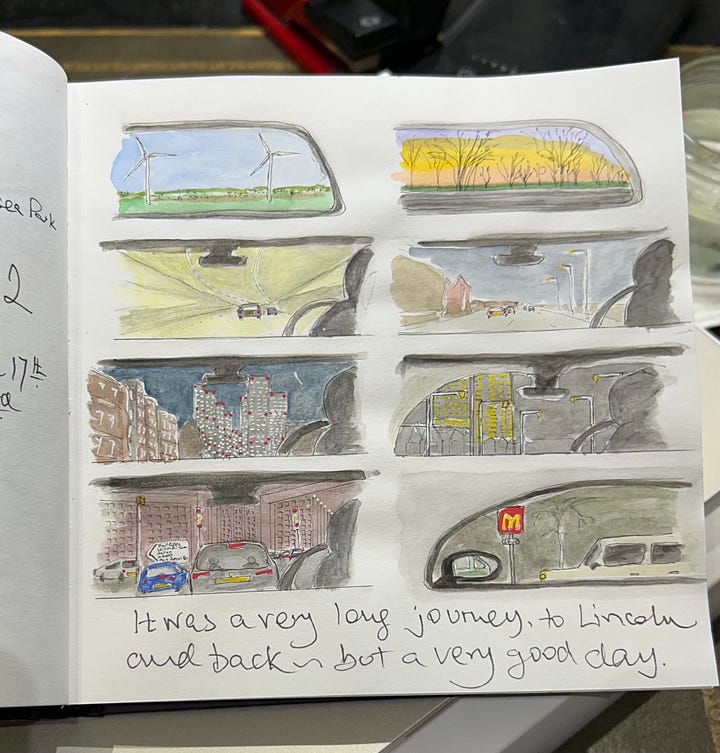 Park
2
17th
M
It was a very long journey, to Lincoln
and back – but a very good day.